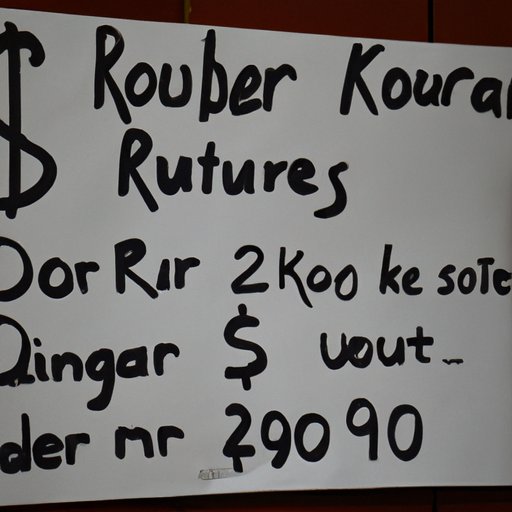 $ Rouber Koural
Rutures
Dor Rir 2Koo ke sote
Dingar $ uout--
der mr 29090